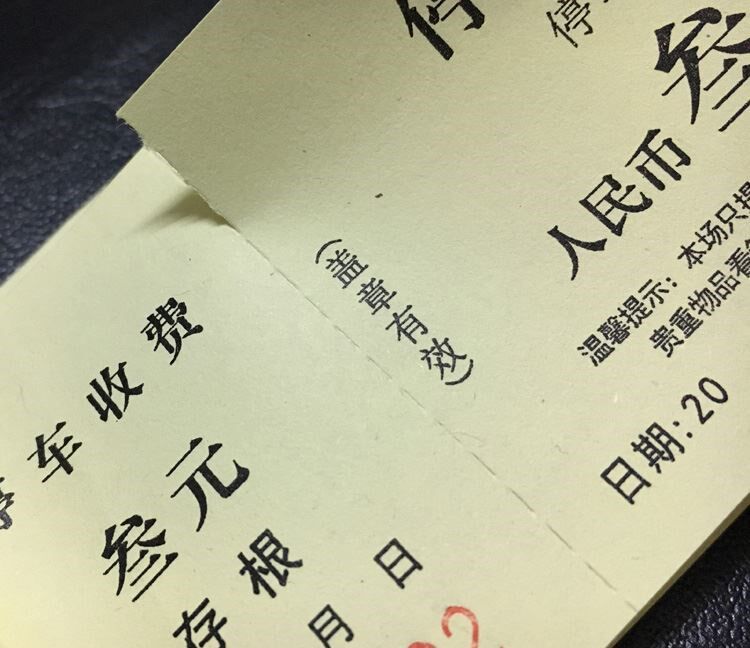 停车收费
叁元
存根
月 日
(盖章有效)
停
停
人民币叁
温馨提示：本场只提
贵重物品看
日期:20